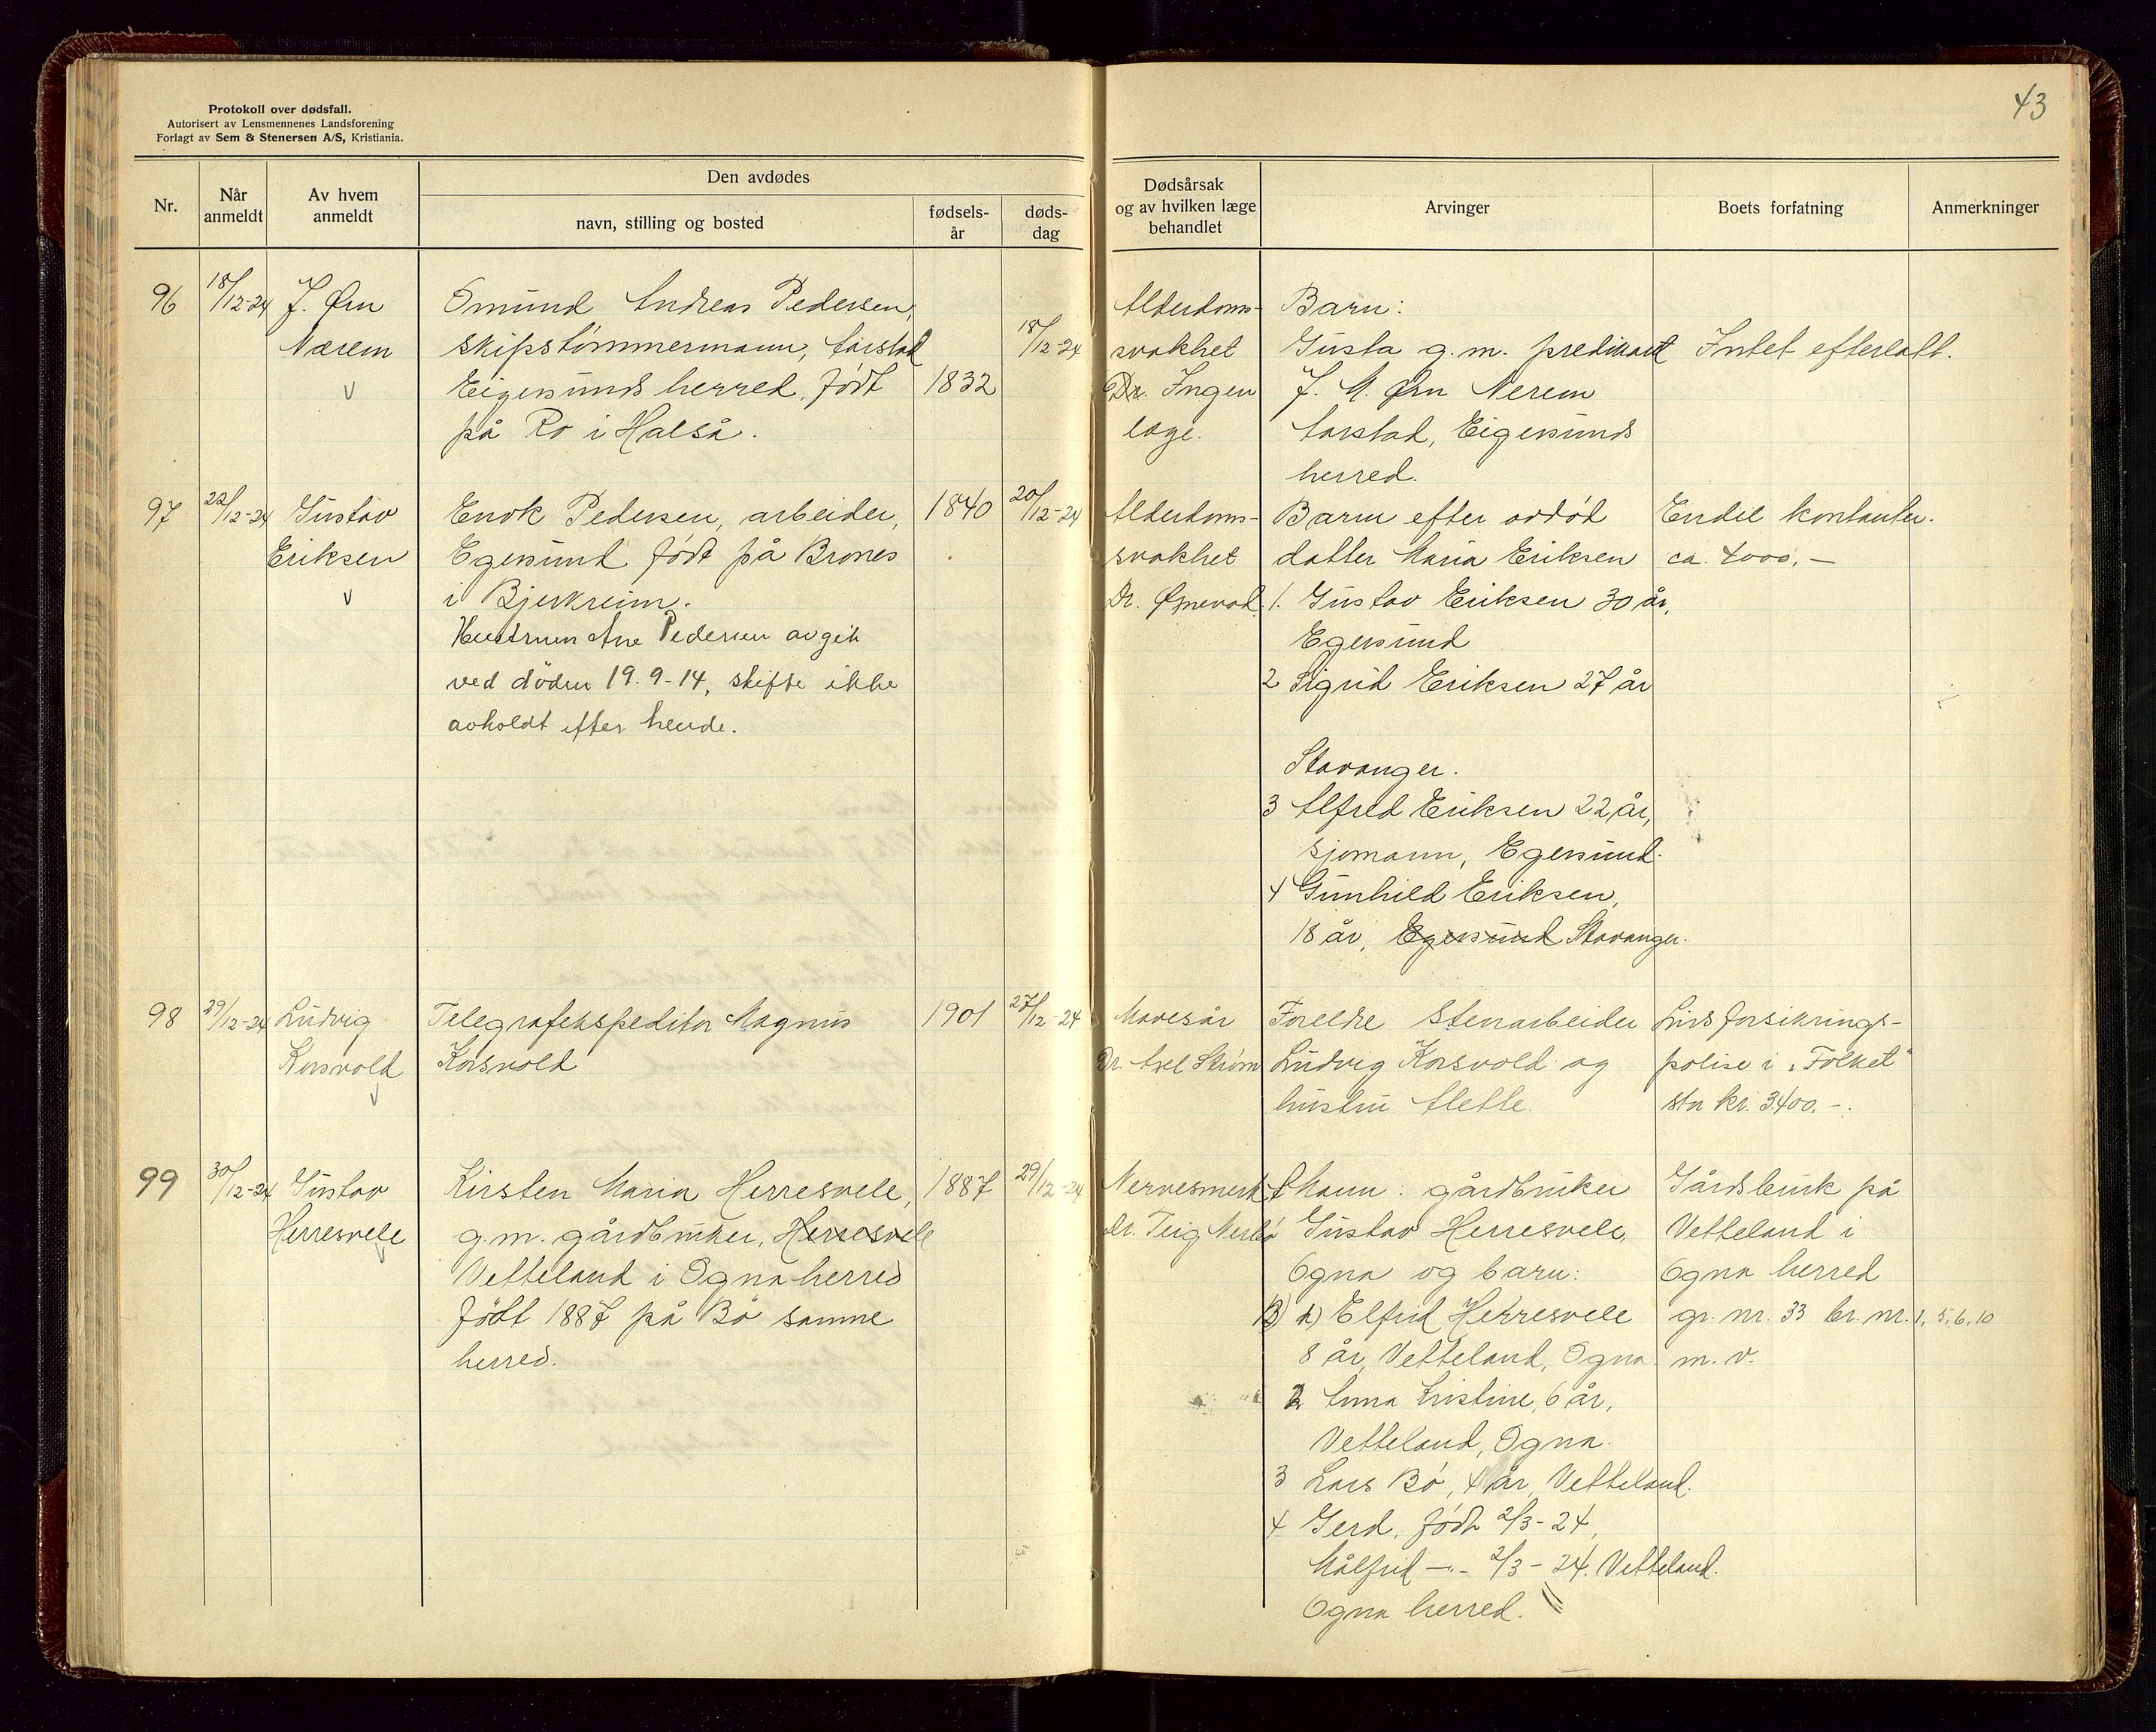 Protokoll over dødsfall.
Autorisert av Lensmennenes Landsforening
Forlagt av Sem & Stenersen A/S, Kristiania.
43
Nr.
Når anmeldt
Av hvem anmeldt
Den avdødes
navn, stilling og bosted
fødsels-år
døds-dag
Dødsårsak og av hvilken læge behandlet
Arvinger
Boets forfatning
Anmerkninger
96
18/12-24
J. Ørn
Nærem
v
Omund Andreas Pedersen,
skipstömmermann, Årstad
Eigersunds herred, født
på Ro i Halså.
1832
18/12-24
Alderdoms-
svakhet
Dr. Ingen
læge.
Barn:
Gusta g.m. predikant
J. M. Ørn Nerem
Årstad, Eigersunds
herred.
Intet efterlatt.
97
22/12-24
Gustav
Eriksen
v
Enok Pedersen, arbeider,
Egersund født på Brones
i Bjerkreim.
Hustruen Ane Pedersen avgik
ved döden 19.9-14, skifte ikke
avholdt efter hende.
1840
20/12-24
Alderdoms-
svakhet
Dr.
Barn efter avdöd
datter Maria Eriksen
1. Gustav Eriksen 30 år,
Egersund
2 Sigrid Eriksen 27 år
Stavanger.
3 Alfred Eriksen 22 år,
sjømann, Egersund.
4 Gunhild Eriksen,
18 år, Egersund Stavanger.
Endel kontanter.
ca. 4000,-
98
29/12-24
Ludvig
Korsvold
v
Telegrafekspeditør Magnus
Korsvold
1901
27/12-24
Mavesår
Dr. Axel Strøm
Foreldre Stenarbeider
Ludvig Korsvold og
hustru Alette.
Livsforsikrings-
polise i "Folket"
stor kr. 3400.-.
99
30/12-24
Gustav
Herresvele
v
Kirsten Maria Herresvele,
g.m. gårdbruker, Herresvele
Vetteland i Ogna herred
født 1887 på Bö samme
herred.
1887
29/12-24
Dr. Teig Nærbø
Mann: gårdbruker
Gustav Herresvele,
Ogna og barn:
1) Elfrid Herresvele
8 år, Vetteland, Ogna
2 Anna Kristine, 6 år,
Vetteland, Ogna.
3 Lars Bö, 4 år, Vetteland.
4 Gerd, født 2/3-24,
Målfrid -"- 2/3-24. Vetteland.
Ogna herred.
Gårdsbruk på
Vetteland i
Ogna herred
gr. nr. 33 br. nr. 1, 5, 6, 10
m. v.